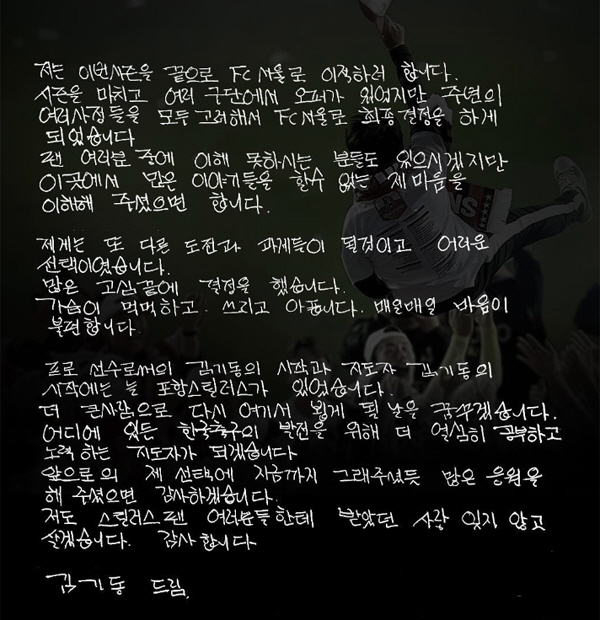 저는 이번시즌을 끝으로 FC서울로 이적하려 합니다.
시즌을 마치고 여러 구단에서 오퍼가 있었지만 주변의
여러사정들을 모두 고려해서 FC서울로 최종결정을 하게
되었습니다
팬 여러분 중에 이해 못하시는 분들도 있으시겠지만
이곳에서 많은 이야기들을 할수 없는 제마음을
이해해 주셨으면 합니다.
제게는 또 다른 도전과 과제들이 될것이고 어려운
선택이였습니다.
많은 고심끝에 결정을 했습니다.
가슴이 먹먹하고 쓰리고 아픕니다. 매일매일 마음이
불편합니다.
프로 선수로써의 김기동의 시작과 지도자 김기동의
시작에는 늘 포항스틸러스가 있었습니다.
더 큰사람으로 다시 여기서 뵙게 될 날을 꿈꾸겠습니다.
어디에 있든 한국축구의 발전을 위해 더 열심히 공부하고
노력 하는 지도자가 되겠습니다
앞으로의 제 선택에 지금까지 그래주셨듯 많은 응원을
해 주셨으면 감사하겠습니다.
저도 스틸러스팬 여러분들한테 받았던 사랑 잊지 않고
살겠습니다. 감사합니다
김기동 드림.